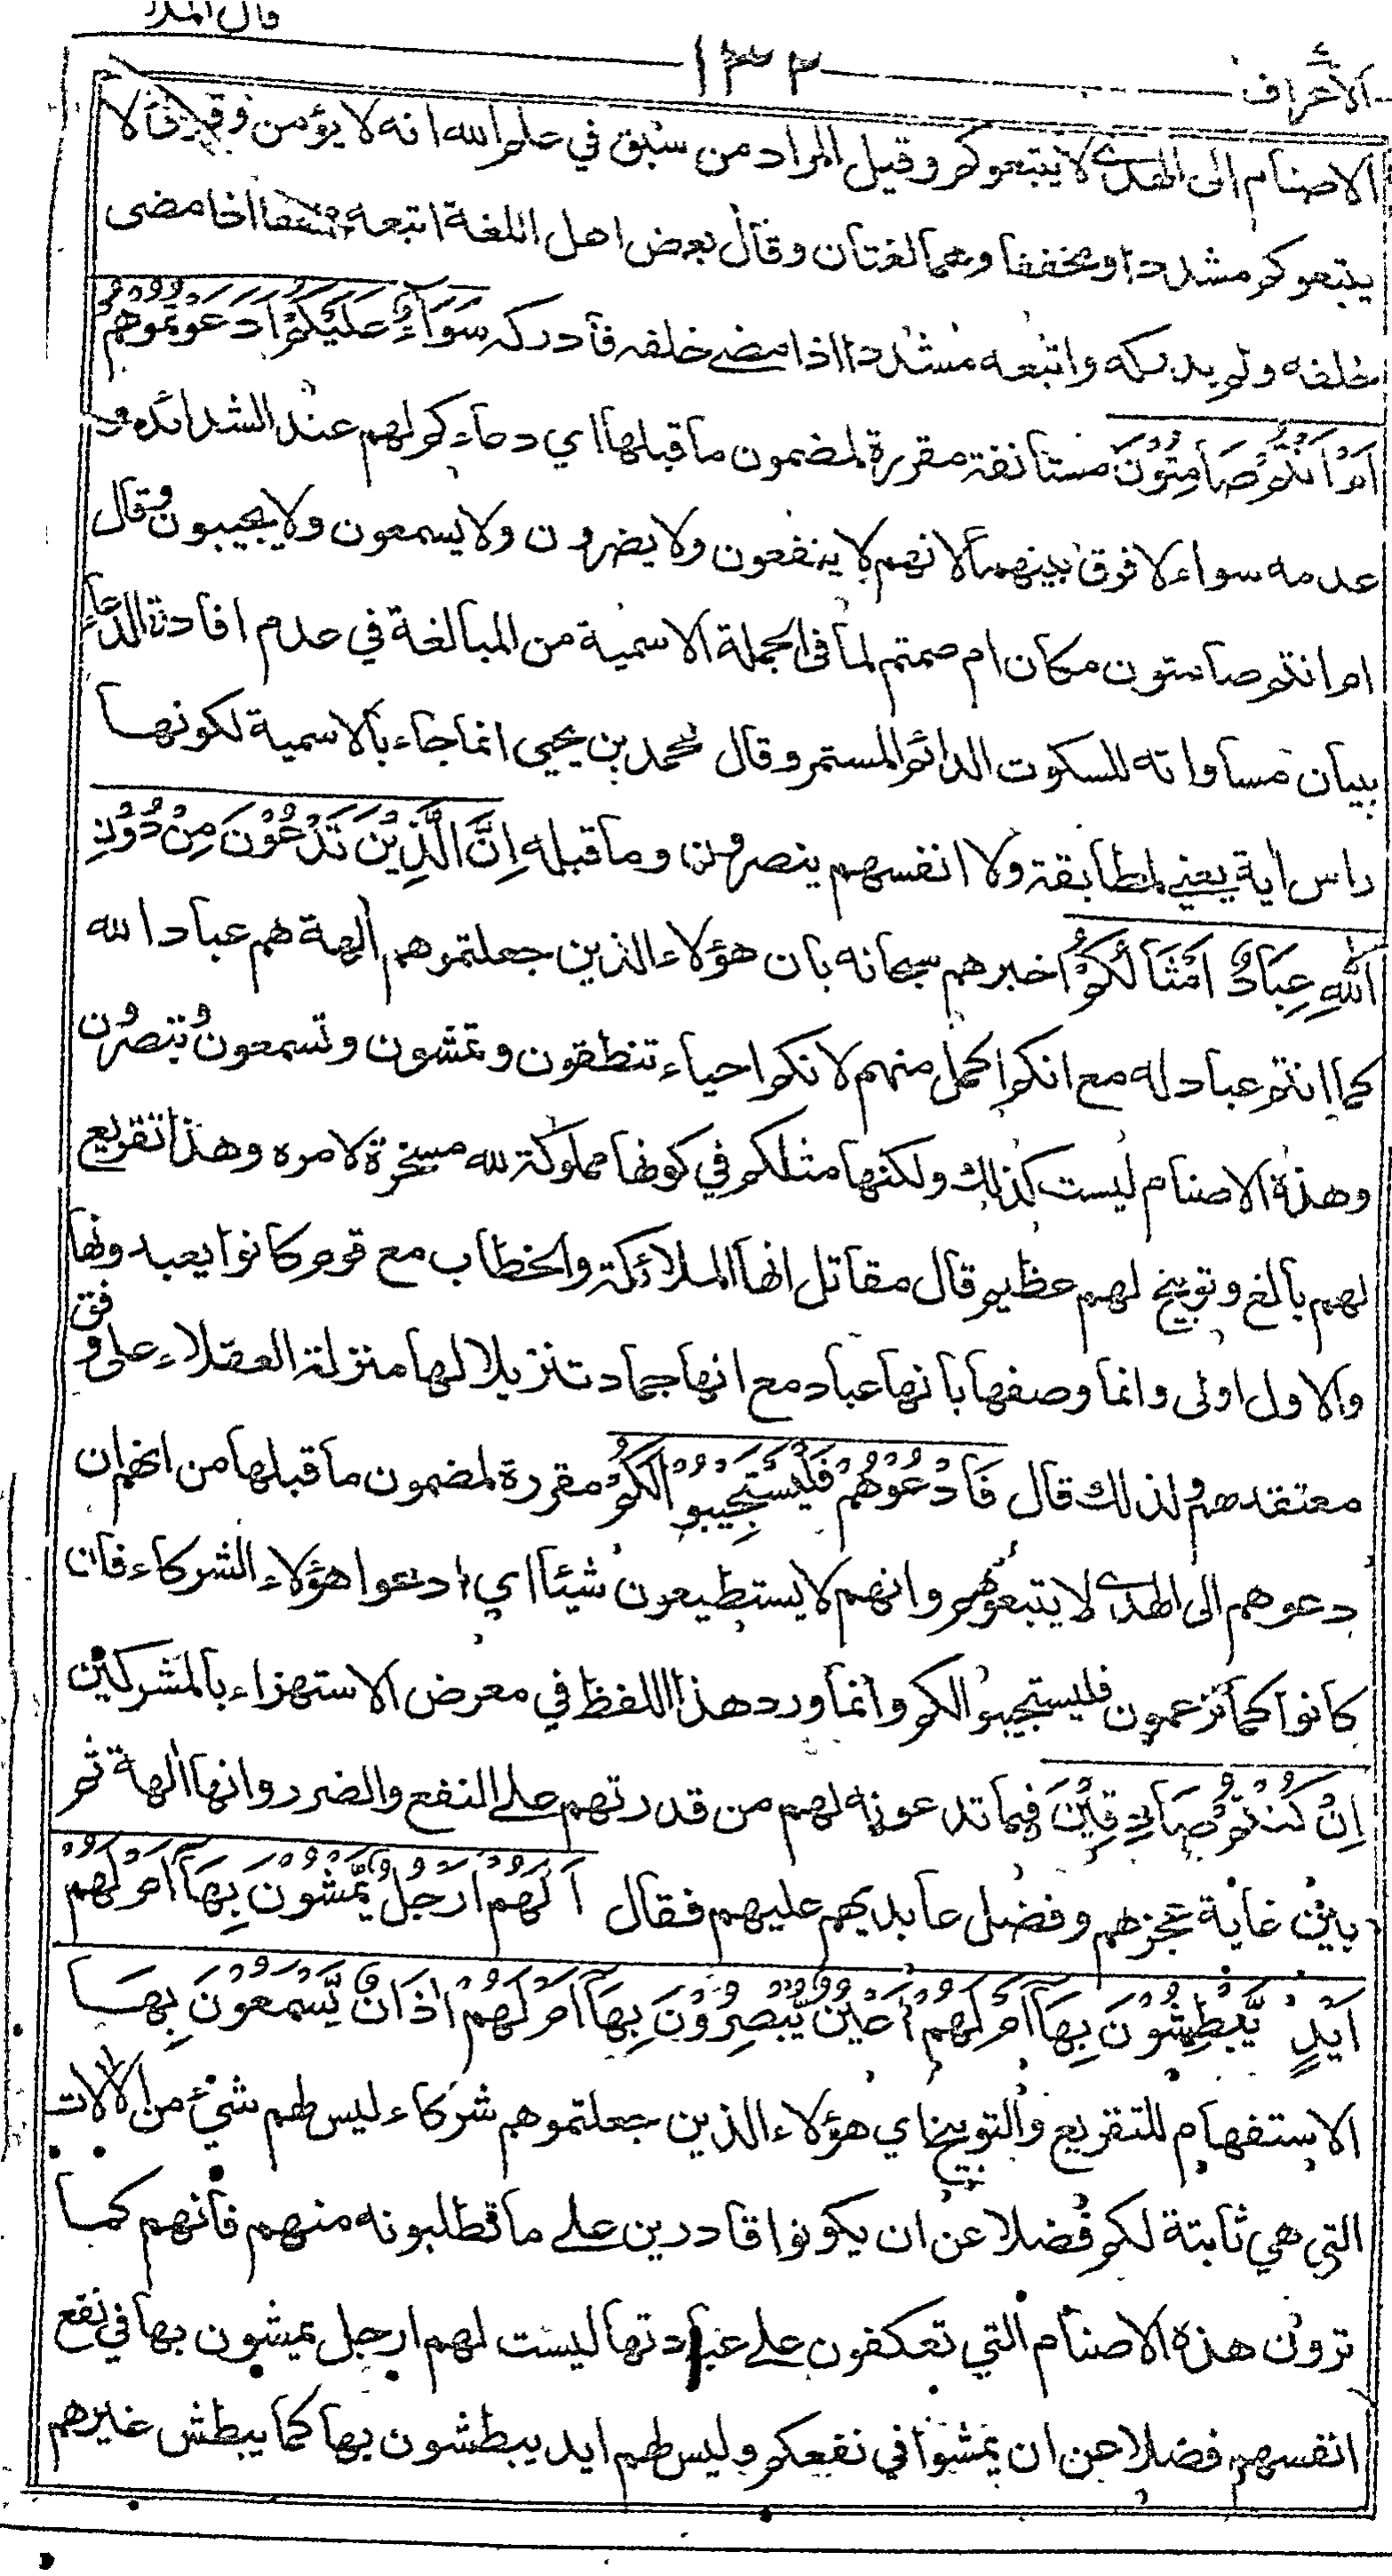 قال الملا
الأعراف
١٣٢
الاصنام الى الهدى لا يتبعوكم وقيل المراد من سبق في علم الله انه لا يؤمن وقرئ لا
يتبعوكم مشددا ومخففا وهما لغتان وقال بعض اهل اللغة اتبعه مخففا اذا مضى
خلفه ولم يدركه واتبعه مشددا اذا مضى خلفه فأدركه سَوَآءٌ عَلَيْكُمْ اَدَعَوْتُمُوْهُمْ
اَمْ اَنْتُمْ صَامِتُوْنَ مستأنفة مقررة لمضمون ما قبلها اي دعاءكم لهم عند الشدائد و
عدمه سواء لا فرق بينهما لانهم لا ينفعون ولا يضرون ولا يسمعون ولا يجيبون وقال
ام انتم صامتون مكان ام صمتم لما في الجملة الاسمية من المبالغة في عدم افادة الدعاء
ببيان مساواته للسكوت الدائم المستمر وقال محمد بن يحيى انما جاء بالاسمية لكونها
راس اية يعني لمطابقة ولا انفسهم ينصرون وما قبله اِنَّ الَّذِيْنَ تَدْعُوْنَ مِنْ دُوْنِ
اللّٰهِ عِبَادٌ اَمْثَالُكُمْ اخبرهم سبحانه بان هؤلاء الذين جعلتموهم الهة هم عباد الله
كما انتم عباد له مع انكم اكمل منهم لانكم احياء تنطقون وتمشون وتسمعون وتبصرون
وهذه الاصنام ليست كذلك ولكنها مثلكم في كونها مملوكة لله مسخرة لامره وهذا تقريع
لهم بالغ وتوبيخ لهم عظيم قال مقاتل انها الملائكة والخطاب مع قوم كانوا يعبدونها
والاول اولى وانما وصفها بانها عباد مع انها جماد تنزيلا لها منزلة العقلاء على وفق
معتقدهم ولذلك قال فَادْعُوْهُمْ فَلْيَسْتَجِيْبُوْا لَكُمْ مقررة لمضمون ما قبلها من انهم ان
دعوهم الى الهدى لا يتبعوهم وانهم لا يستطيعون شيئا اي ادعوا هؤلاء الشركاء فان
كانوا كما تزعمون فليستجيبوا لكم وانما ورد هذا اللفظ في معرض الاستهزاء بالمشركين
اِنْ كُنْتُمْ صَادِقِيْنَ فيما تدعونه لهم من قدرتهم على النفع والضرر وانها الهة ثم
بين غاية عجزهم وفضل عابديهم عليهم فقال اَلَهُمْ اَرْجُلٌ يَّمْشُوْنَ بِهَآ اَمْ لَهُمْ
اَيْدٍ يَّبْطِشُوْنَ بِهَآ اَمْ لَهُمْ اَعْيُنٌ يُّبْصِرُوْنَ بِهَآ اَمْ لَهُمْ اٰذَانٌ يَّسْمَعُوْنَ بِهَا
الاستفهام للتقريع والتوبيخ اي هؤلاء الذين جعلتموهم شركاء ليس لهم شيء من الالات
التي هي ثابتة لكم فضلا عن ان يكونوا قادرين على ما تطلبونه منهم فانهم كما
ترون هذه الاصنام التي تعكفون على عبادتها ليست لهم ارجل يمشون بها في نفع
انفسهم فضلا عن ان يمشوا في نفعكم وليس لهم ايد يبطشون بها كما يبطش غيرهم